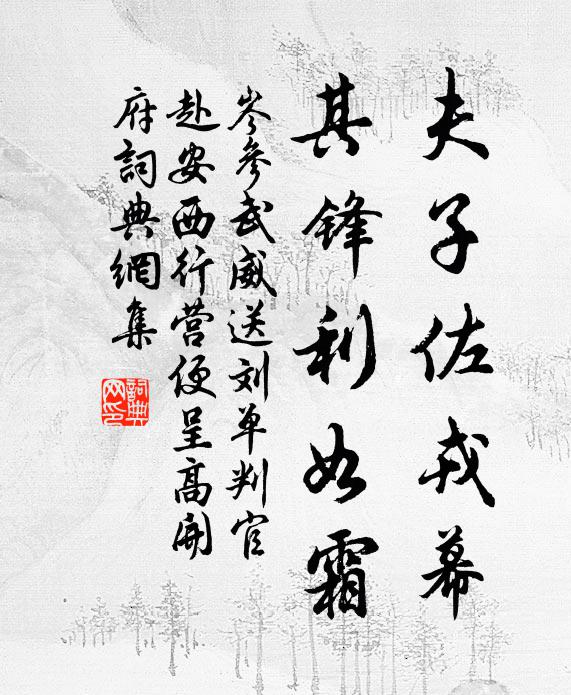 夫子佐戎幕
其锋利如霜
岑参武威送刘单判官
赴安西行营便呈高開
府詞典網集
詞典
网印